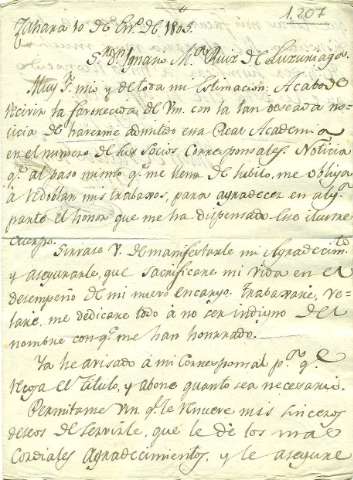 1.207
Zahara 10 de En.º de 1805.
S.r D.n Ignacio M.a Ruiz de Luzuriaga
Muy S. mio y de toda mi estimación: Acabo de
recivir la favorecida de Vm. con la tan deseada no-
ticia de haverme admitido esa Real Academia
en el numero de sus Socios Corresponsales. Noticia
q.e al paso mismo q.e me llena de jubilo, me obliga
à redoblar mis trabajos, para agradecer en alg.a
parte el honor que me ha dispensado ese ilustre
Cuerpo.
Sirvase V. de manifestarle mi Agradecim.to
y asegurarle, que sacrificare mi vida en el
desempeño de mi nuevo encargo. Trabajare, ve-
lare, me dedicare todo à no ser indigno del
nombre con q.e me han honrrado.
Ya he avisado à mi Corresponsal p.a q.e
recoja el titulo, y abone quanto sea necesario.
Permitame Vm q.e le renueve mis sinceros
deseos de servirle, que le de los mas
Cordiales Agradecimientos, y le asegure